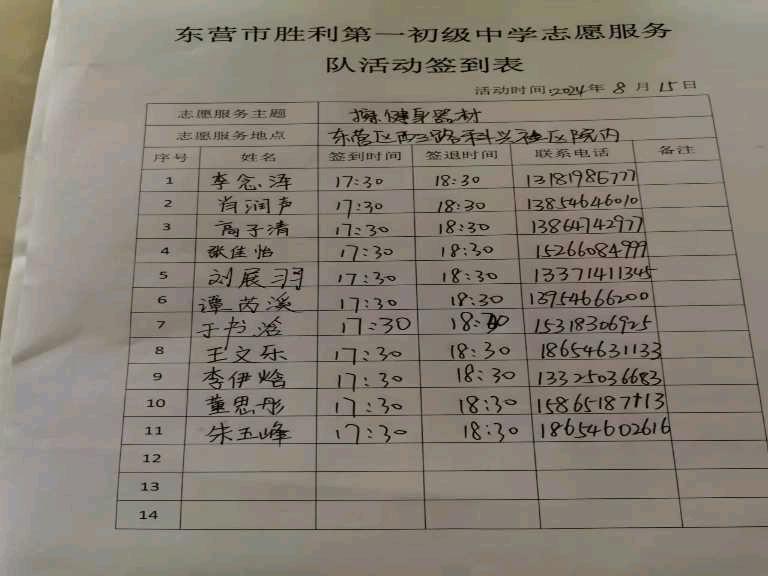 东营市胜利第一初级中学志愿服务
队活动签到表
活动时间:2024年 8 月 15 日
志愿服务主题 擦健身器材
志愿服务地点 东营区西三路科兴社区院内
序号 姓名 签到时间 签退时间 联系电话 备注
1 李念 17:30 18:30 13181985777
2 肖润声 17:30 18:30 13854646010
3 高子清 17:30 18:30 13864742977
4 张佳怡 17:30 18:30 15266084999
5 刘展羽 17:30 18:30 13371411345
6 谭芮溪 17:30 18:30 13954666200
7 于书涵 17:30 18:30 15318306925
8 王文乐 17:30 18:30 18654631133
9 李伊晗 17:30 18:30 13325036683
10 董思彤 17:30 18:30 15865187113
11 朱玉峰 17:30 18:30 18654602616
12
13
14